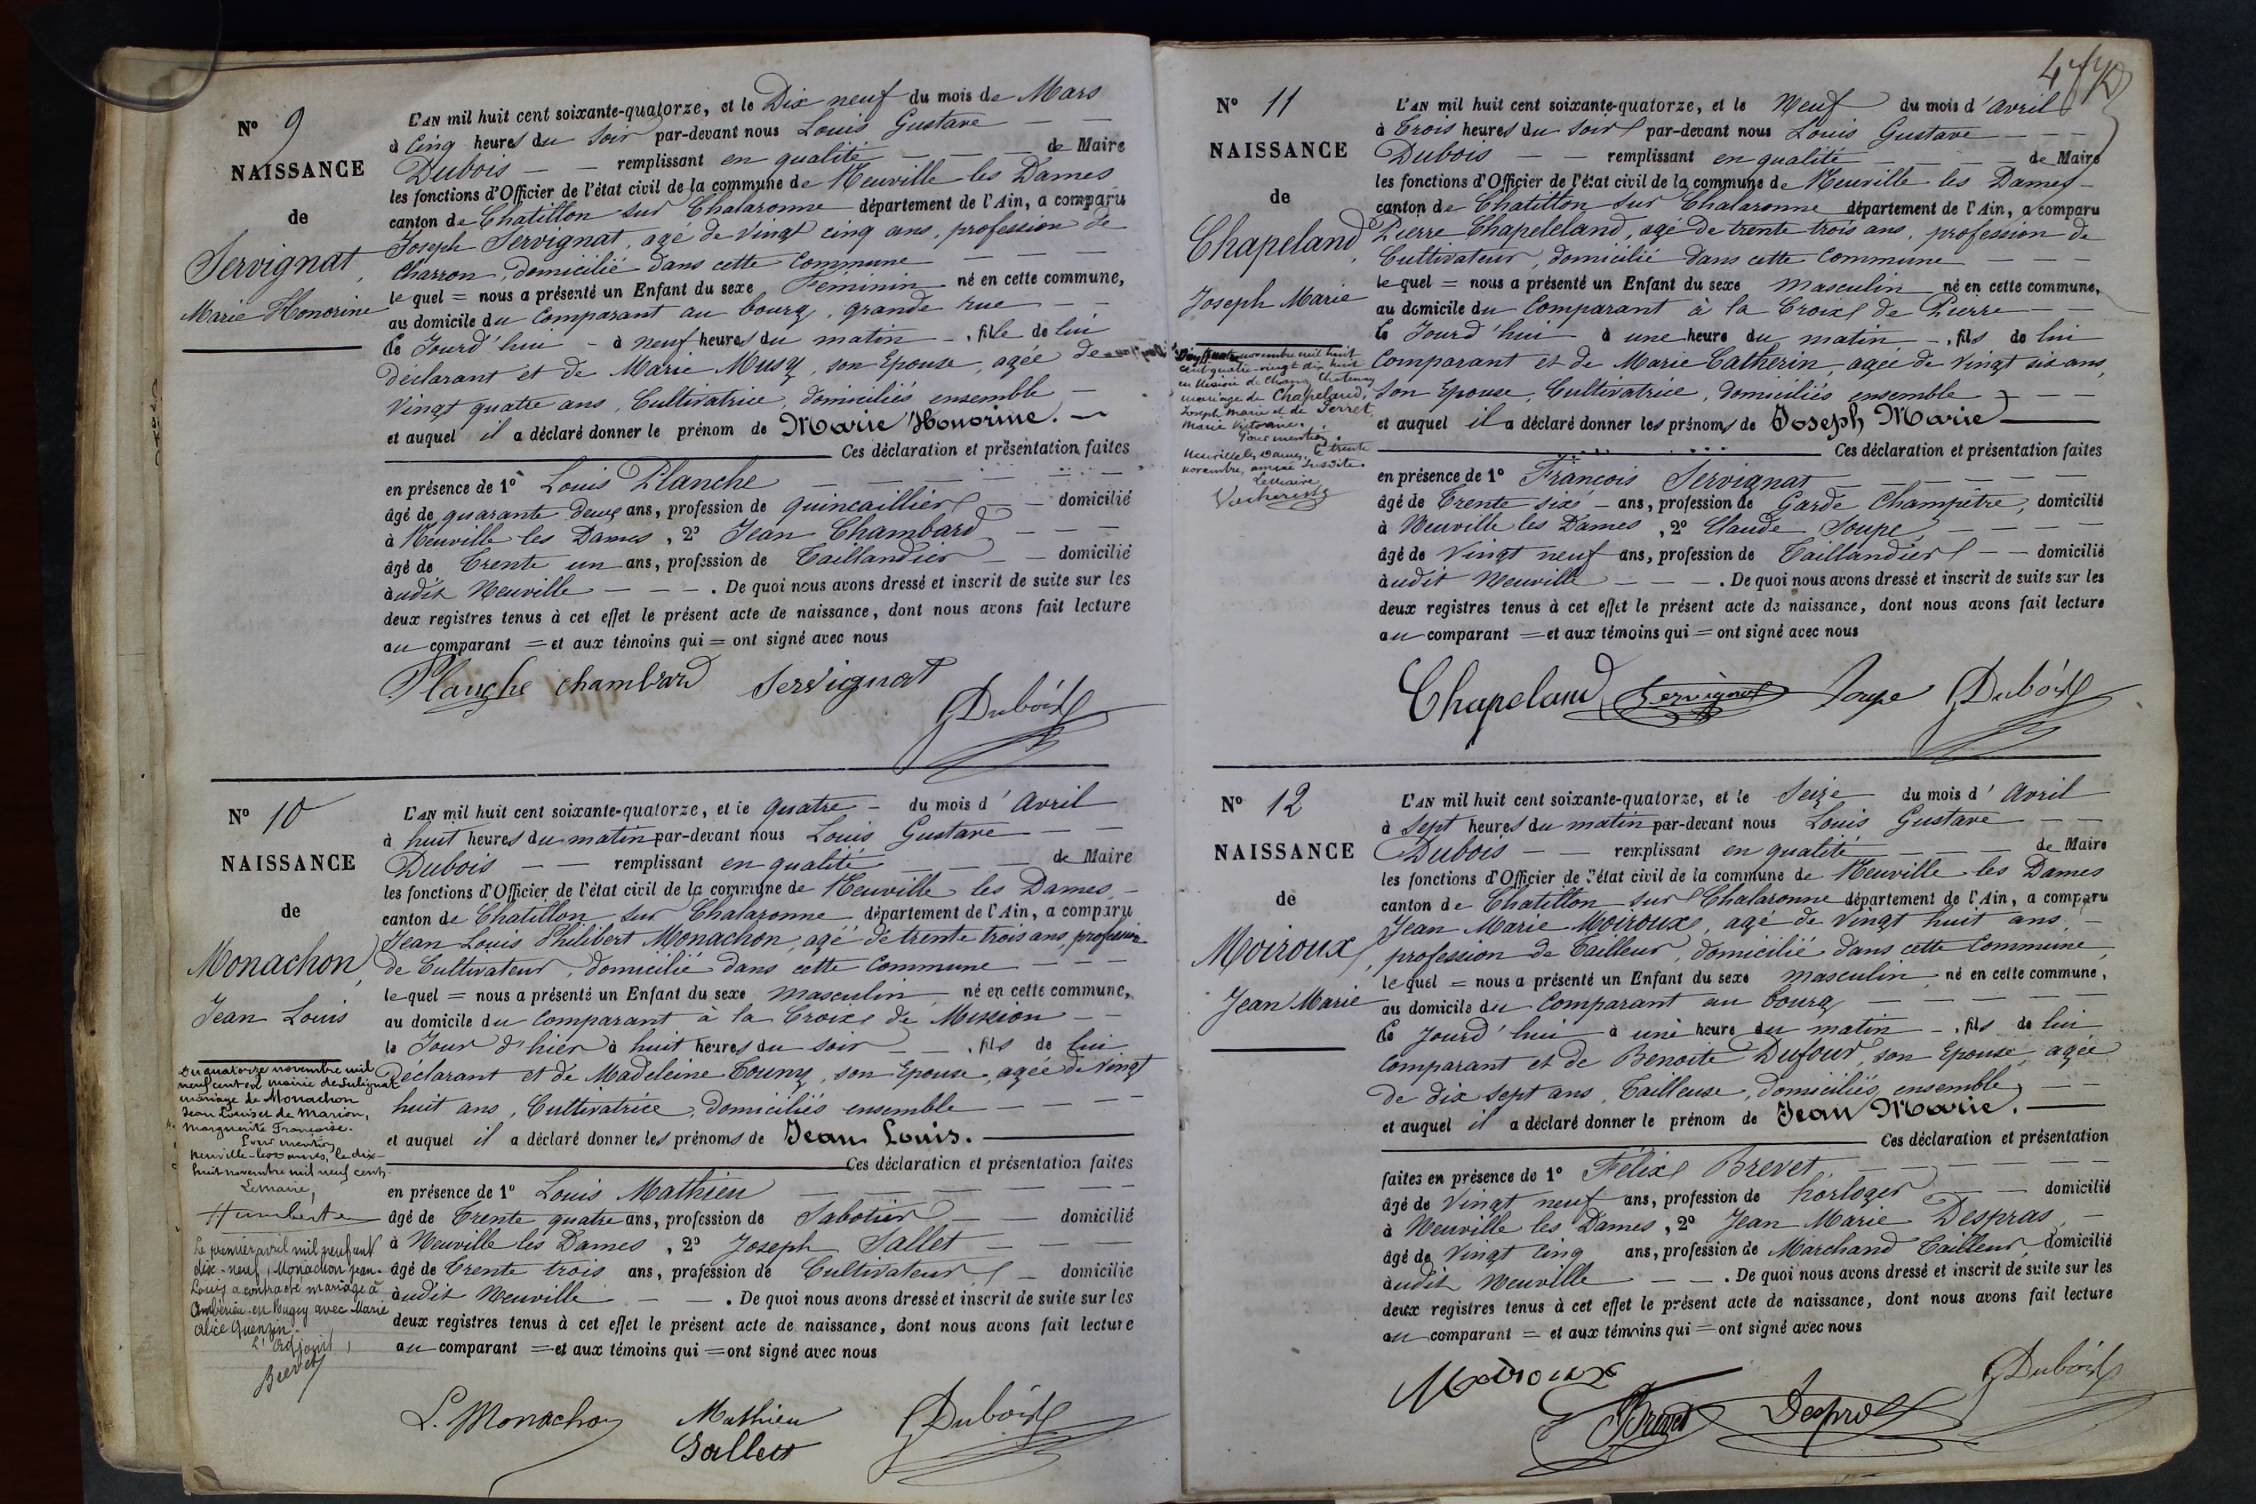 Nº 9
NAISSANCE
de
Servignat,
Marie Honorine
L'AN mil huit cent soixante-quatorze, et le Dix neuf du mois de Mars
à Cinq heures du Soir par-devant nous Louis Gustave
Dubois remplissant en qualité de Maire
les fonctions d'Officier de l'état civil de la commune de Neuville les Dames
canton de Chatillon sur Chalaronne département de l'Ain, a comparu
Joseph Servignat, agé de vingt cinq ans, profession de
Charron, domicilié dans cette Commune
le quel = nous a présenté un Enfant du sexe Féminin né en cette commune,
au domicile du Comparant au bourg, grande rue
Ce Jourd'hui à neuf heures du matin, fille de lui
déclarant et de Marie Musy, son Epouse, agée de
Vingt quatre ans, Cultivatrice, domiciliés ensemble
et auquel il a déclaré donner le prénom de Marie Honorine.
Ces déclaration et présentation faites
en présence de 1º Louis Planche
âgé de quarante deux ans, profession de quincaillier domicilié
à Neuville les Dames, 2º Jean Chambard
âgé de Trente un ans, profession de Taillandier domicilié
àudit Neuville. De quoi nous avons dressé et inscrit de suite sur les
deux registres tenus à cet effet le présent acte de naissance, dont nous avons fait lecture
au comparant = et aux témoins qui = ont signé avec nous
Planche Chambard Servignat
G Dubois
Nº 10
NAISSANCE
de
Monachon,
Jean Louis
L'AN mil huit cent soixante-quatorze, et le quatre du mois d'Avril
à huit heures du matin par-devant nous Louis Gustave
Dubois remplissant en qualité de Maire
les fonctions d'Officier de l'état civil de la commune de Neuville les Dames
canton de Chatillon sur Chalaronne département de l'Ain, a comparu
Jean Louis Philibert Monachon, agé de trente trois ans, profession
de Cultivateur, domicilié dans cette Commune
le quel = nous a présenté un Enfant du sexe masculin né en cette commune,
au domicile du Comparant à la Croix de Mission
le Jour d'hier à huit heures du soir, fils de lui
Déclarant et de Madeleine Touny, son Epouse, agée de vingt
huit ans, Cultivatrice, domiciliés ensemble
et auquel il a déclaré donner les prénoms de Jean Louis.
Ces déclaration et présentation faites
en présence de 1º Louis Mathieu
âgé de Trente quatre ans, profession de Sabotier domicilié
à Neuville les Dames, 2º Joseph Sallet
âgé de Trente trois ans, profession de Cultivateur domicilié
àudit Neuville. De quoi nous avons dressé et inscrit de suite sur les
deux registres tenus à cet effet le présent acte de naissance, dont nous avons fait lecture
au comparant = et aux témoins qui = ont signé avec nous
L. Monachon Mathieu G Dubois
Sallet
Du quatorze novembre mil
neuf cent en mairie de Sulignat
mariage de Monachon
Jean Louis et de Marion,
Marguerite Françoise.
Pour mention
Neuville-les-Dames, le dix-
huit novembre mil neuf cent.
Le Maire,
Humbert
Le premier avril mil neuf cent
dix-neuf, Monachon Jean-
Louis a contracté mariage à
Ambérieu-en-Bugey avec Marie
Alice Guenzin.
L'adjoint,
Brevet
Nº 11
NAISSANCE
de
Chapeland,
Joseph Marie
L'AN mil huit cent soixante-quatorze, et le Neuf du mois d'Avril
à Trois heures du soir par-devant nous Louis Gustave
Dubois remplissant en qualité de Maire
les fonctions d'Officier de l'état civil de la commune de Neuville les Dames
canton de Chatillon sur Chalaronne département de l'Ain, a comparu
Pierre Chapeleland, agé de trente trois ans, profession de
Cultivateur, domicilié dans cette Commune
le quel = nous a présenté un Enfant du sexe masculin né en cette commune,
au domicile du Comparant à la Croix de Pierre
Ce Jourd'hui à une heure du matin, fils de lui
Comparant et de Marie Catherin, agée de vingt six ans,
Son Epouse, Cultivatrice, domiciliés ensemble
et auquel il a déclaré donner les prénoms de Joseph Marie
Ces déclaration et présentation faites
en présence de 1º François Servignat
âgé de Trente six ans, profession de Garde Champêtre, domicilié
à Neuville les Dames, 2º Claude Soupe
âgé de Vingt neuf ans, profession de Taillandier domicilié
àudit Neuville. De quoi nous avons dressé et inscrit de suite sur les
deux registres tenus à cet effet le présent acte de naissance, dont nous avons fait lecture
au comparant = et aux témoins qui = ont signé avec nous
Chapeland Servignat Soupe G Dubois
novembre mil huit
cent quatre-vingt dix huit
en Mairie de Chanoz Chatenay
mariage de Chapeland,
Joseph Marie et de Perret
Marie Victorine.
Pour mention.
Neuville les Dames, le trente
novembre, année susdite.
Le Maire
Nº 12
NAISSANCE
de
Moiroux,
Jean Marie
L'AN mil huit cent soixante-quatorze, et le Seize du mois d'Avril
à Sept heures du matin par-devant nous Louis Gustave
Dubois remplissant en qualité de Maire
les fonctions d'Officier de l'état civil de la commune de Neuville les Dames
canton de Chatillon sur Chalaronne département de l'Ain, a comparu
Jean Marie Moiroux, agé de vingt huit ans,
profession de Tailleur, domicilié dans cette Commune,
le quel = nous a présenté un Enfant du sexe masculin né en cette commune,
au domicile du Comparant au bourg
Ce Jourd'hui à une heure du matin, fils de lui
Comparant et de Benoite Dufour, son Epouse, agée
de dix sept ans, Tailleuse, domiciliés ensemble,
et auquel il a déclaré donner le prénom de Jean Marie.
Ces déclaration et présentation
faites en présence de 1º Félix Brevet,
âgé de Vingt neuf ans, profession de horloger domicilié
à Neuville les Dames, 2º Jean Marie Despras,
âgé de Vingt cinq ans, profession de Marchand Tailleur, domicilié
àudit Neuville. De quoi nous avons dressé et inscrit de suite sur les
deux registres tenus à cet effet le présent acte de naissance, dont nous avons fait lecture
au comparant = et aux témoins qui = ont signé avec nous
Moiroux G Dubois
Brevet Despras